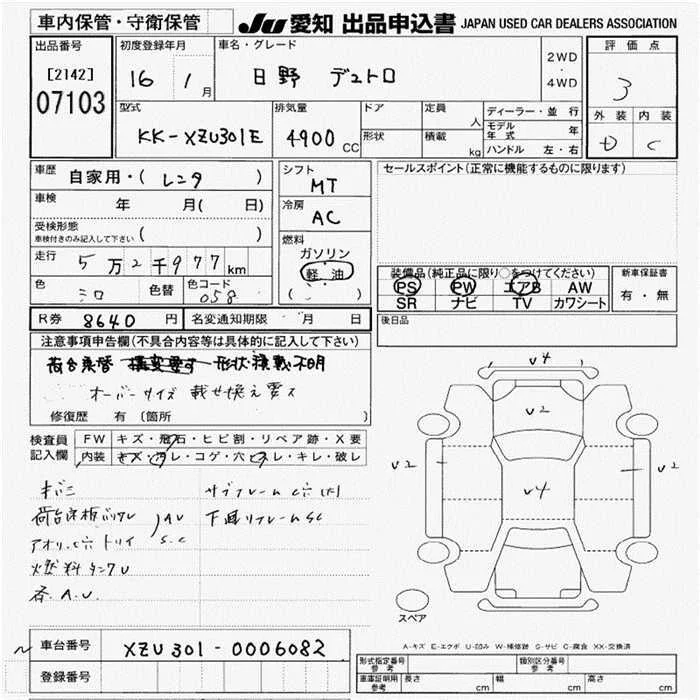 車内保管・守衛保管
JU 愛知 出品申込書 JAPAN USED CAR DEALERS ASSOCIATION
出品番号
[2142]
07103
初度登録年月
16 1 月
車名・グレード
日野 デュトロ
2WD
・
4WD
評価点
3
外装 内装
D C
型式
KK-XZU301E
排気量
4900 CC
ドア
形状
定員 人
積載 kg
ディーラー・並行
モデル年式 年
ハンドル 左・右
車歴 自家用・( レンタ )
車検 年 月( 日)
受検形態
車検付きのみ記入して下さい ( )
走行 5万2千977 km
色 シロ 色替 色コード 058
シフト
MT
冷房
AC
燃料
ガソリン
軽・油
( )
セールスポイント(正常に機能するものに限ります)
装備品(純正品に限り○をつけてください)
PS PW エアB AW
SR ナビ TV カワシート
新車保証書
有・無
R券 8640 円 名変通知期限 月 日
後日品
注意事項申告欄(不具合内容等は具体的に記入して下さい)
オーバーサイズ 載せ換え要ス
修復歴 有 〔箇所 〕
検査員
記入欄
FW キズ・飛石・ヒビ割・リペア跡・X要
内装 キズ・汚レ・コゲ・穴・スレ・キレ・破レ
V4
V2
V2 V2
V4
サブフレーム C穴
荷台床板
AU
S.C
下廻リフレームSC
アオリ
燃料タンクU
各A.U.
スペア
A-キズ E-エクボ U-凹み W-補修跡 S-サビ C-腐食 XX-交換済
車台番号 XZU301-0006082
登録番号
形式指定番号 参考
類別区分番号 参考
車庫証明用 参考 長さ cm 幅 cm 高さ cm